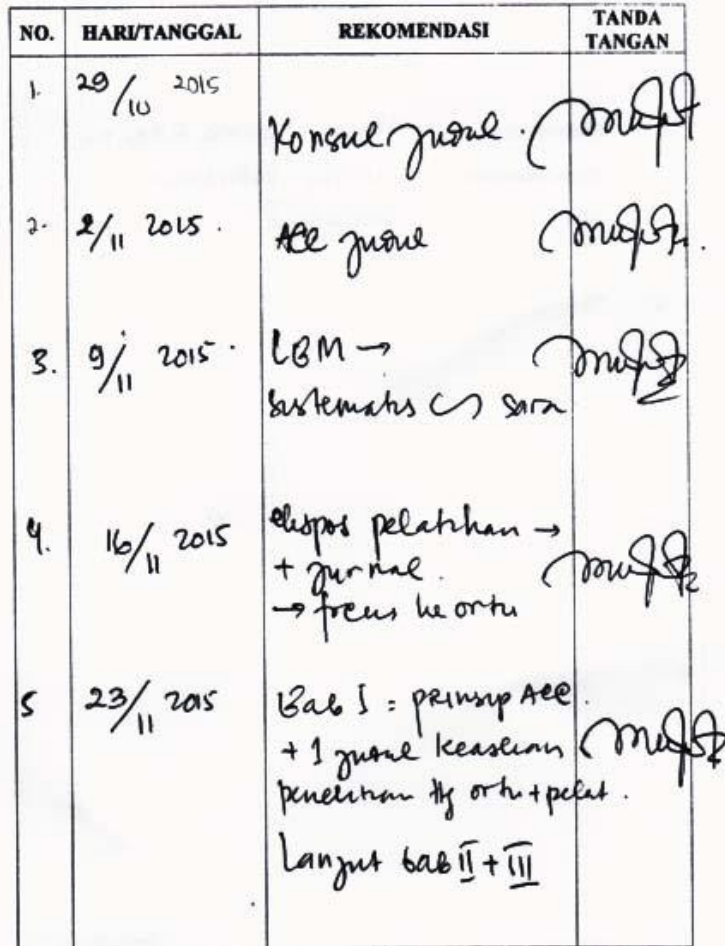 NO. HARI/TANGGAL REKOMENDASI TANDA TANGAN
1. 29/10 2015 Konsul judul.
2. 2/11 2015. Acc judul
3. 9/11 2015. LBM →
sistematis sara
4. 16/11 2015 ekspos pelatihan →
+ jurnal.
→ focus ke ortu
5 23/11 2015 Bab I = prinsip Acc.
+ 1 judul keaslian
penelitian ttg ortu + pelat.
Lanjut bab II + III